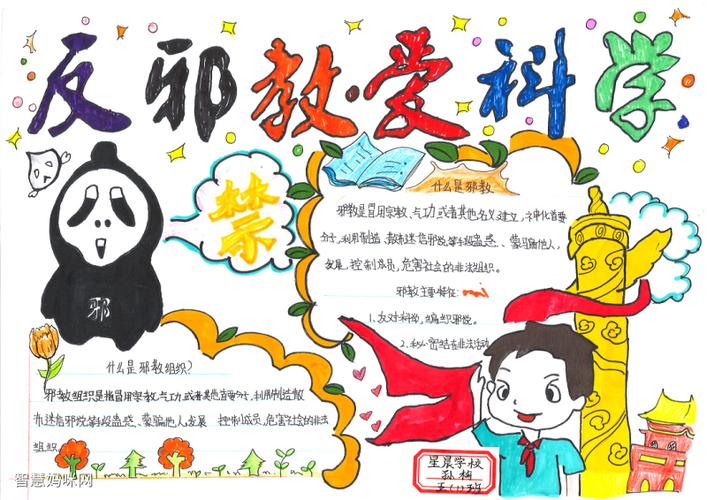 反邪教·爱科学
禁
邪
什么是邪教
邪教是冒用宗教、气功或者其他名义建立,神化首要
分子,利用制造、散布迷信邪说等手段蛊惑、蒙骗他人,
发展、控制成员,危害社会的非法组织。
邪教主要特征:
1、反对科学,编织邪说。
2、秘密结在非法活动
什么是邪教组织?
邪教组织是指冒用宗教、气功或者其他首要分子,利用制造散
布迷信邪说等手段蛊惑、蒙骗他人,发展 控制成员,危害社会的非法
组织
星晨学校
孙
五(1)班
智慧妈咪网